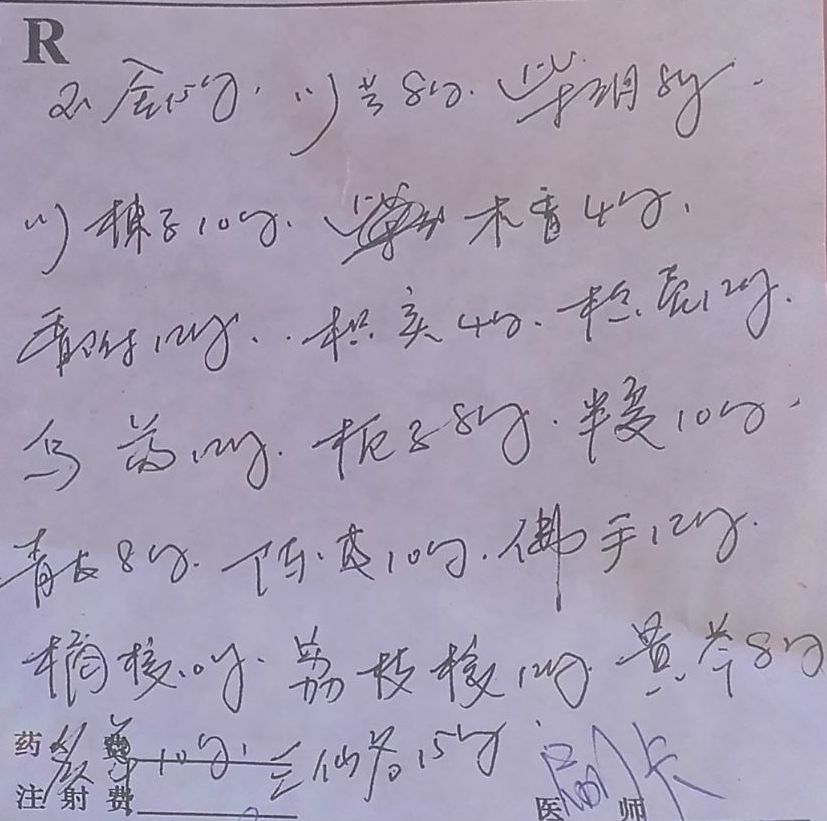 R
内金15g. 川芎8g. 柴胡8g.
川楝子10g. 木香4g.
香附12g. 枳实4g. 枳壳12g.
乌药12g. 栀子8g. 半夏10g.
青皮8g. 陈皮10g. 佛手12g.
橘核10g. 荔枝核12g. 黄芩8g
药 费 10g. 三仙各15g
注射费 医 师 刷卡